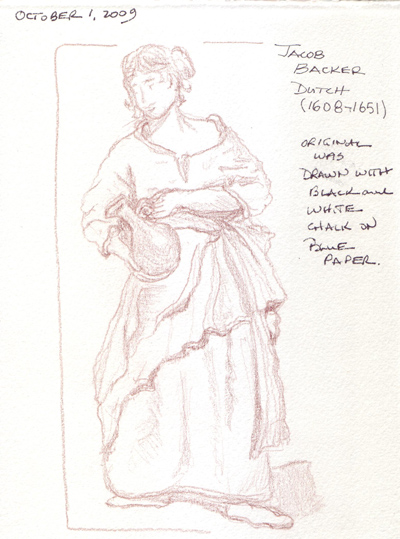 OCTOBER 1, 2009
JACOB
BACKER
DUTCH
(1608-1651)
ORIGINAL
WAS
DRAWN WITH
BLACK and
WHITE
CHALK ON
BLUE
PAPER.